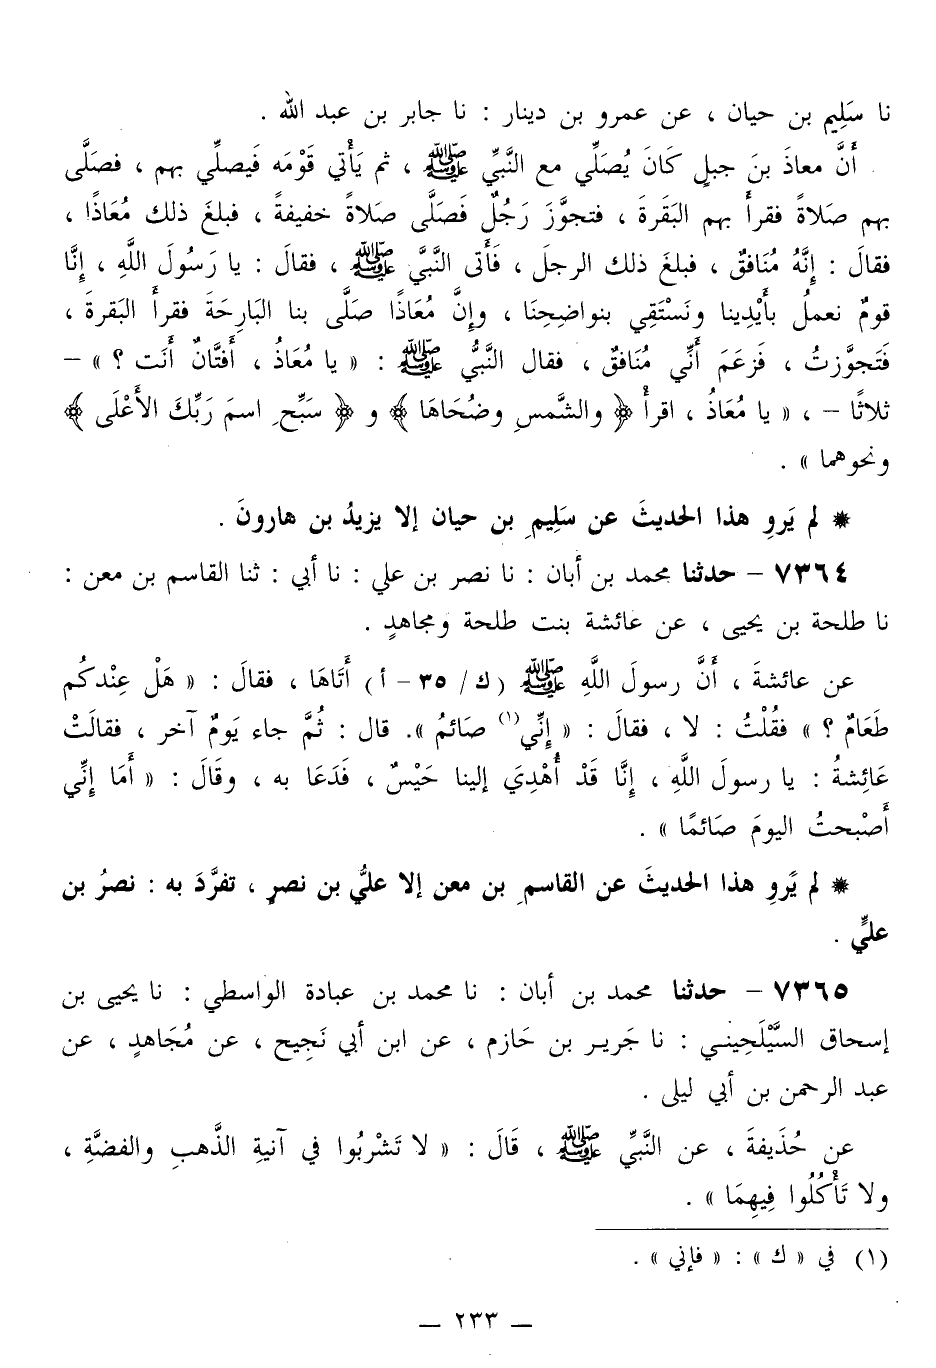 نا سَلِيم بن حيان ، عن عمرو بن دينار : نا جابر بن عبد الله .
أَنَّ معاذَ بنَ جبلٍ كَانَ يُصَلِّي مع النَّبيِّ ﷺ ، ثم يَأْتي قَوْمَه فَيصلِّي بهم ، فصلَّى
بهم صلاةً فقرأَ بهم البَقرةَ ، فتجوَّزَ رَجُلٌ فَصلَّى صلاةً خفيفةً ، فبلغَ ذلك مُعَاذًا ،
فقالَ : إِنَّهُ مُنَافقٌ ، فبلغَ ذلك الرجلَ ، فَأتى النَّبيَّ ﷺ ، فقالَ : يا رَسُولَ اللَّهِ ، إِنَّا
قومٌ نعملُ بأَيْدِينا ونَسْتَقِي بنواضِحِنَا ، وإِنَّ مُعَاذًا صلَّى بنا البَارِحَةَ فقرأَ البَقرةَ ،
فَتجوَّزتُ ، فَزعَمَ أَنِّي مُنَافقٌ ، فقال النَّبيُّ ﷺ : « يا مُعَاذُ ، أَفتَّانٌ أَنت ؟ » –
ثلاثًا – ، « يا مُعَاذُ ، اقرأْ ﴿ والشَّمسِ وضُحَاهَا ﴾ و ﴿ سَبِّحِ اسمَ رَبِّكَ الأَعْلَى ﴾
ونحوهما » .
* لم يَروِ هذا الحديثَ عن سَلِيمِ بن حيان إلا يزيدُ بن هارونَ .
٧٣٦٤ – حدثنا محمد بن أبان : نا نصر بن علي : نا أبي : ثنا القاسم بن معن :
نا طلحة بن يحيى ، عن عائشة بنت طلحة ومجاهدٍ .
عن عائشةَ ، أَنَّ رسولَ اللَّهِ ﷺ (ك/ ٣٥ – أ) أَتَاهَا ، فقالَ : « هَلْ عِنْدكُم
طَعَامٌ ؟ » فقُلْتُ : لا ، فقالَ : « إِنِّي(١) صَائمُ ». قال : ثُمَّ جاء يَومٌ آخر ، فقالَتْ
عَائِشةُ : يا رسولَ اللَّهِ ، إِنَّا قَدْ أُهْدِيَ إلينا حَيْسٌ ، فَدَعَا به ، وقَالَ : « أَمَا إِنِّي
أَصْبحتُ اليومَ صَائمًا » .
* لم يَروِ هذا الحديثَ عن القاسمِ بن معن إلا عليُّ بن نصرٍ ، تفرَّدَ به : نصرُ بن
عليٍّ .
٧٣٦٥ – حدثنا محمد بن أبان : نا محمد بن عبادة الواسطي : نا يحيى بن
إسحاق السَّيْلَحِيني : نا جَرير بن حَازم ، عن ابن أبي نَجِيح ، عن مُجَاهدٍ ، عن
عبد الرحمن بن أبي ليلى .
عن حُذَيفةَ ، عن النَّبيِّ ﷺ ، قَالَ : « لا تَشْربُوا في آنيةِ الذَّهبِ والفضَّةِ ،
ولا تَأْكُلُوا فِيهِمَا » .
(١) في « ك » : « فإني » .
— ٢٣٣ —